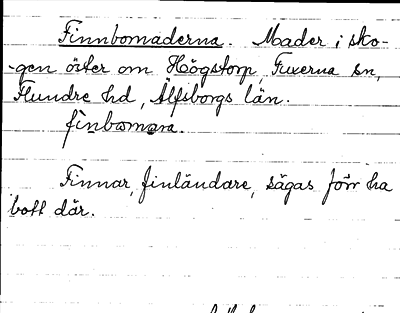 Finnbomaderna. Mader i sko-
-gen öster om Höögstorp, Fuxerna sn,
Flundre hd, Älfsborgs län.
finbomara.
Finnar, finländare, sägas förr ha
bott där.